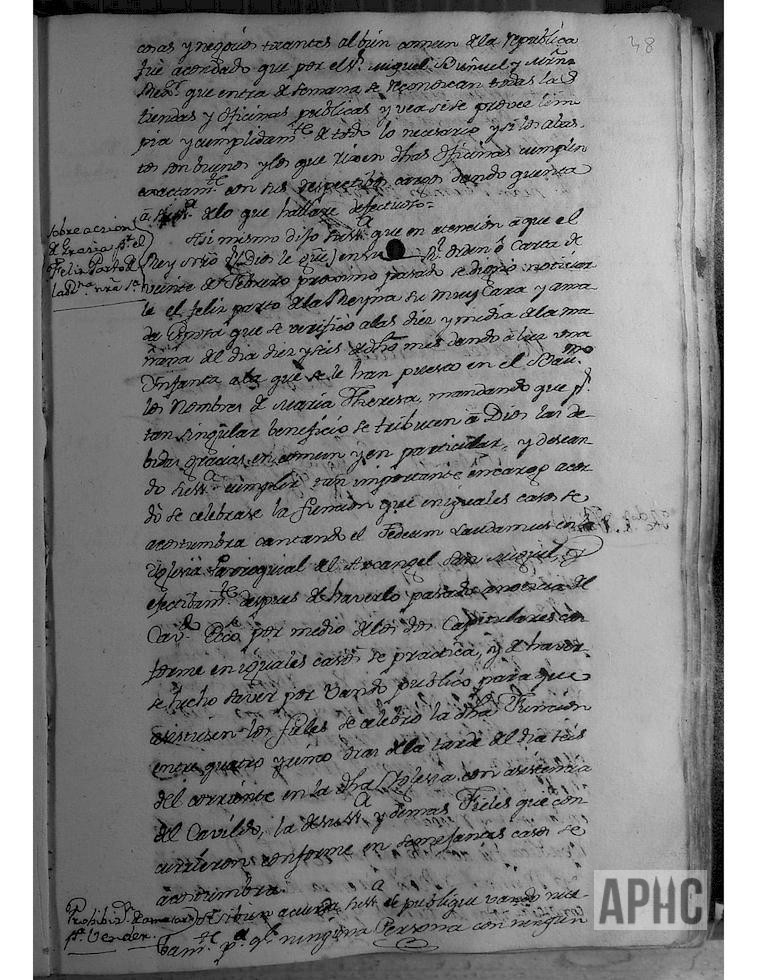 38
cosas y negocios tocantes al bien comun de la republica
fue acordado que por el Sr. Miguel Buñuel y
que entra de semana se reconozcan todas las
tiendas y oficinas publicas y vea si se provee lim
pia y cumplidamte. de todo lo necesario y si los abas
tos son buenos y los que rixen dhas oficinas cumplen
exactamte. con sus respectibos cargos dando quenta
a de lo que hallare defectuoso=
sobre accion
de Gracias pr. el
Feliz Parto de
la Rna. nra Sra.
Asi mismo dijo que en atencion a que el
Rey nro Sr. (Dios le gue) en su Rl. orden o Carta de
veinte de Febrero proximo pasado se digno noticiar
le el feliz parto de la Reyna su muy Cara y ama
da Esposa que se verifico a las diez y media de la ma
ñana del dia diez y seis de dho mes dando a luz una
Ynfanta a la que se le han puesto en el Bau.mo
los Nombres de Maria Theresa, mandando que pr.
tan singular beneficio se tributen a Dios las de
bidas gracias en comun y en particular, y desean
do cumplir tan importante encargo acor
dò se celebrase la funcion que en iguales casos se
acostumbra cantando el Tedeum Laudamus en la
Yglesia Parroquial del Arcangel San Miguel, y
efectibamte. despues de haverlo pasado a noticia del
Cavdo. Ecco. por medio de los dos Capitulares con
forme en iguales casos se practica, y de haver
se hecho saver por Vando publico para que
asistiesen los fieles se celebrò la dha Funcion
entre quatro y cinco oras de la tarde del dia seis
del corriente en la dha Yglesia con asistencia
del Cavildo, la de y demas Fieles que con
currieron conforme en semejantes casos se
acostumbra.
Prohibido
pa. Vender.
acuerda se publique vando nue
bamte. pa. qe. ninguna Persona con ningun
APHC